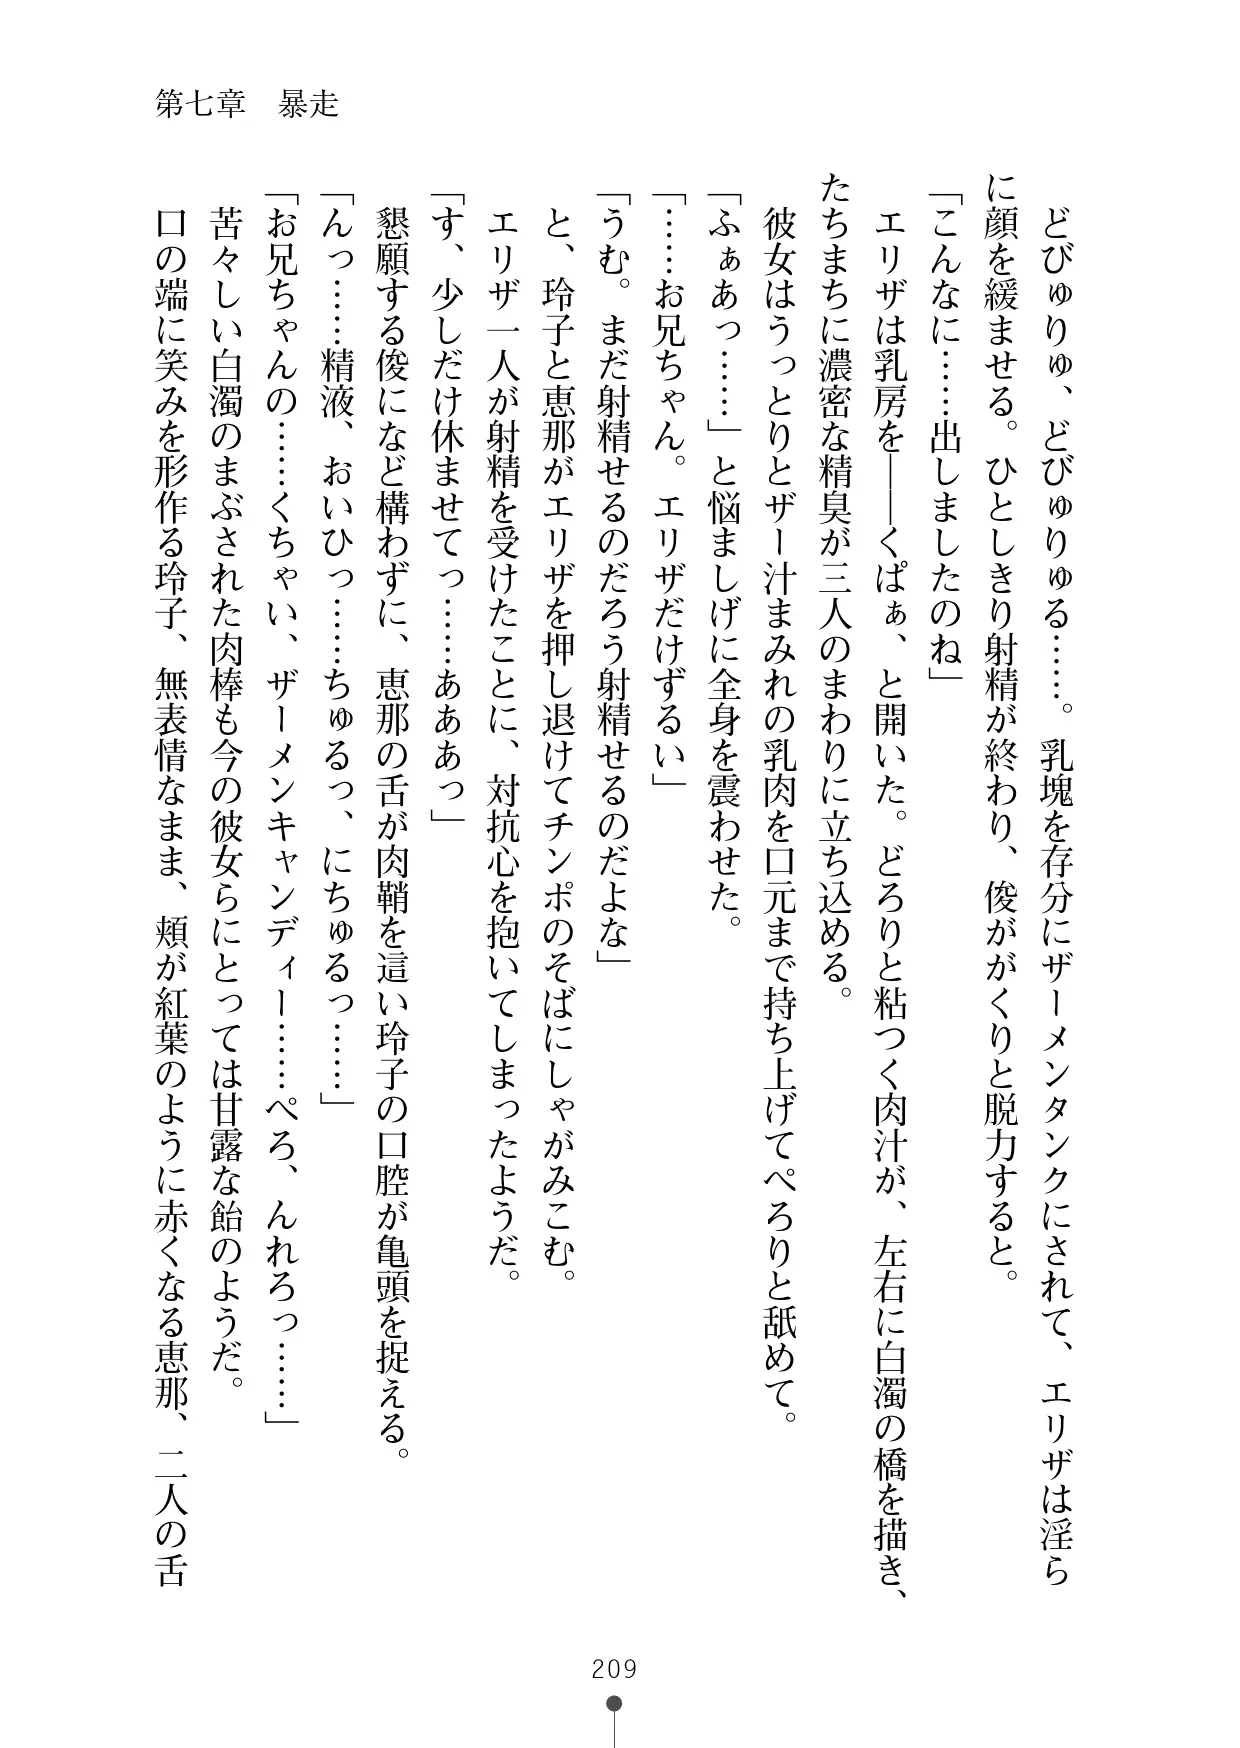 第七章　暴走
　どびゅりゅ、どびゅりゅる……。乳塊を存分にザーメンタンクにされて、エリザは淫ら
に顔を緩ませる。ひとしきり射精が終わり、俊ががくりと脱力すると。
「こんなに……出しましたのね」
　エリザは乳房を――くぱぁ、と開いた。どろりと粘つく肉汁が、左右に白濁の橋を描き、
たちまちに濃密な精臭が三人のまわりに立ち込める。
　彼女はうっとりとザー汁まみれの乳肉を口元まで持ち上げてぺろりと舐めて。
「ふぁあっ……」と悩ましげに全身を震わせた。
「……お兄ちゃん。エリザだけずるい」
「うむ。まだ射精せるのだろう射精せるのだよな」
　と、玲子と恵那がエリザを押し退けてチンポのそばにしゃがみこむ。
　エリザ一人が射精を受けたことに、対抗心を抱いてしまったようだ。
「す、少しだけ休ませてっ……あああっ」
　懇願する俊になど構わずに、恵那の舌が肉鞘を這い玲子の口腔が亀頭を捉える。
「んっ……精液、おいひっ……ちゅるっ、にちゅるっ……」
「お兄ちゃんの……くちゃい、ザーメンキャンディー……ぺろ、んれろっ……」
　苦々しい白濁のまぶされた肉棒も今の彼女らにとっては甘露な飴のようだ。
　口の端に笑みを形作る玲子、無表情なまま、頬が紅葉のように赤くなる恵那、二人の舌
209